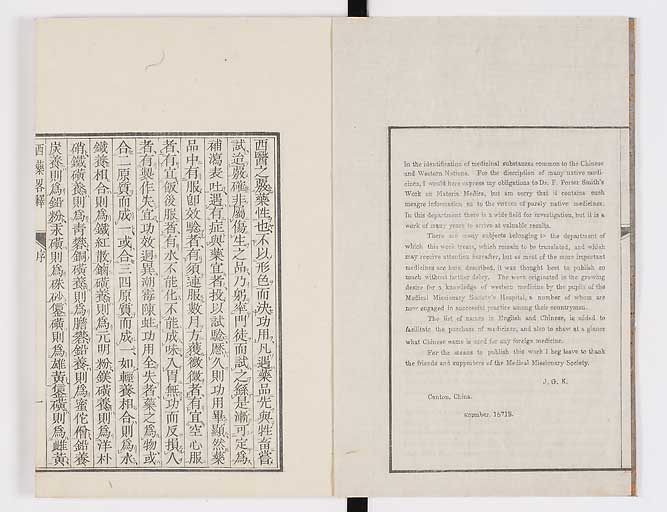 西醫之覈藥性也不以形色而決功用凡遇藥品先與牲畜嘗
試迨覈確非屬傷生之品乃躬率門徒而試之繇是漸可定爲
補瀉表吐遇有症與藥宜者投以試驗歷久則功用畢顯然藥
品中有服卽效驗者有須連服數月方獲微效者有宜空心服
者有宜飯後服者有水不能化不能成味入胃無功而反損人
者有製作失宜功效迥異潮霉陳蛀功用全失者藥之爲物或
合二原質而成一或合三四原質而成一如輕養相合則爲水
鐵養相合則爲鐵紅散鏀磺養則爲元明粉鎂磺養則爲洋朴
硝鐵磺養則爲靑礬銅磺養則爲膽礬鉛養則爲蜜佗僧鉛養
炭養則爲鉛粉汞磺則爲硃砂磺則爲雄黃磺則爲雌黃
西藥畧釋 序 一
In the identification of medicinal substances common to the Chinese
and Western Nations. For the discription of many native medi-
cines, I would here express my obligations to Dr. F. Porter Smith's
Work on Materia Medica, but am sorry that it contains such
meagre information as to the virtues of purely native medicines.
In this department there is a wide field for investigation, but it is a
work of many years to arrive at valuable results.
There are many subjects belonging to the department of
which this work treats, which remain to be translated, and which
may receive attention hereafter, but as most of the more important
medicines are here described, it was thought best to publish so
much without further delay. The work originated in the growing
desire for a knowledge of western medicine by the pupils of the
Medical Missionary Society's Hospital, a number of whom are
now engaged in successful practice among their countrymen.
The list of names in English and Chinese, is added to
facilitate the purchase of medicines, and also to shew at a glance
what Chinese name is used for any foreign medicine.
For the means to publish this work I beg leave to thank
the friends and supporters of the Medical Missionary Society.
J. G. K.
Canton, China.